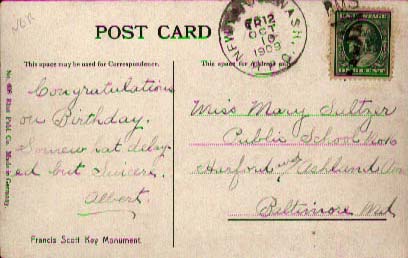 VER
POST CARD
This space may be used for Correspondence.
This space for Address only.
NEW WASH.
12
OCT
1909
RMS
U.S. POSTAGE
ONE CENT
No. 498 Pub. Co. Made in Germany.
Congratulations
on Birthday.
Somewhat delay-
ed but Sincere.
Albert.
Miss Mary Sultzer
Public School No
Harford and Ashland Ave
Baltimore Md
Francis Scott Key Monument